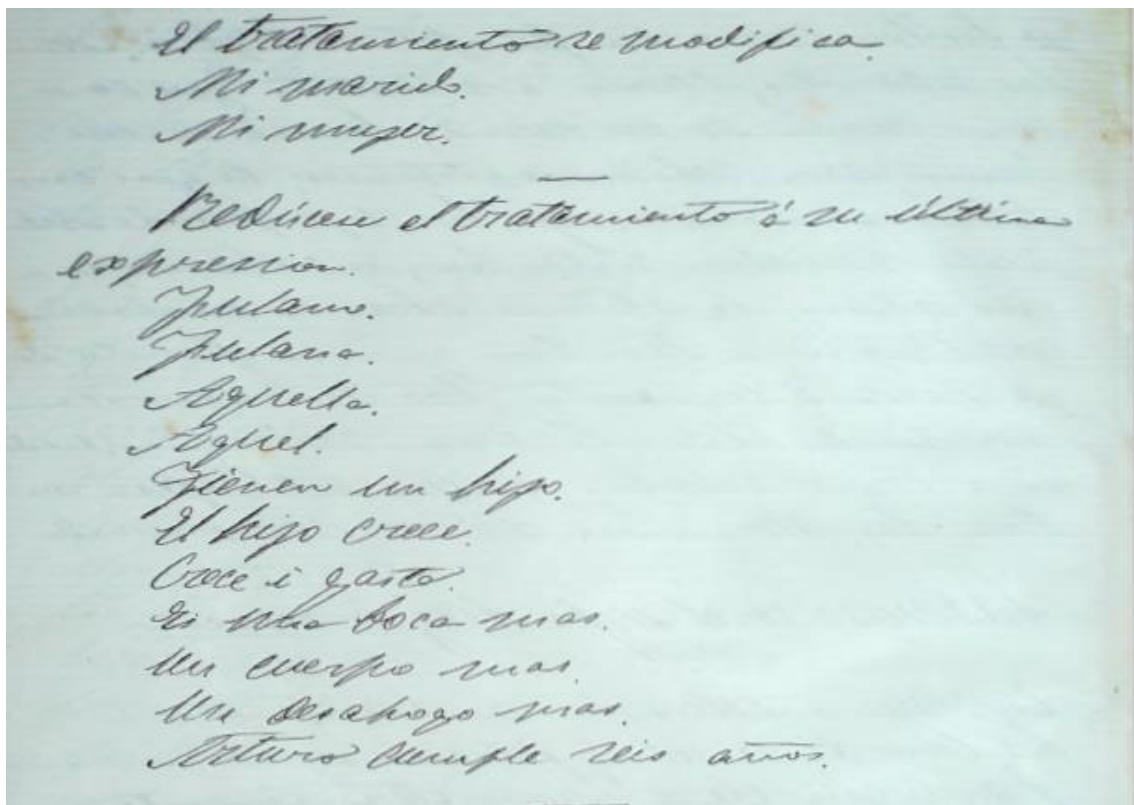 El tratamiento se modifica.
Mi marido.
Mi mujer.
Redúcese el tratamiento á su última
expresion.
Fulano.
Fulana.
Aquella.
Aquel.
Tienen un hijo.
El hijo crece.
Crece i gasta.
Es una boca mas.
Un cuerpo mas.
Un desahogo mas.
Arturo cumple seis años.